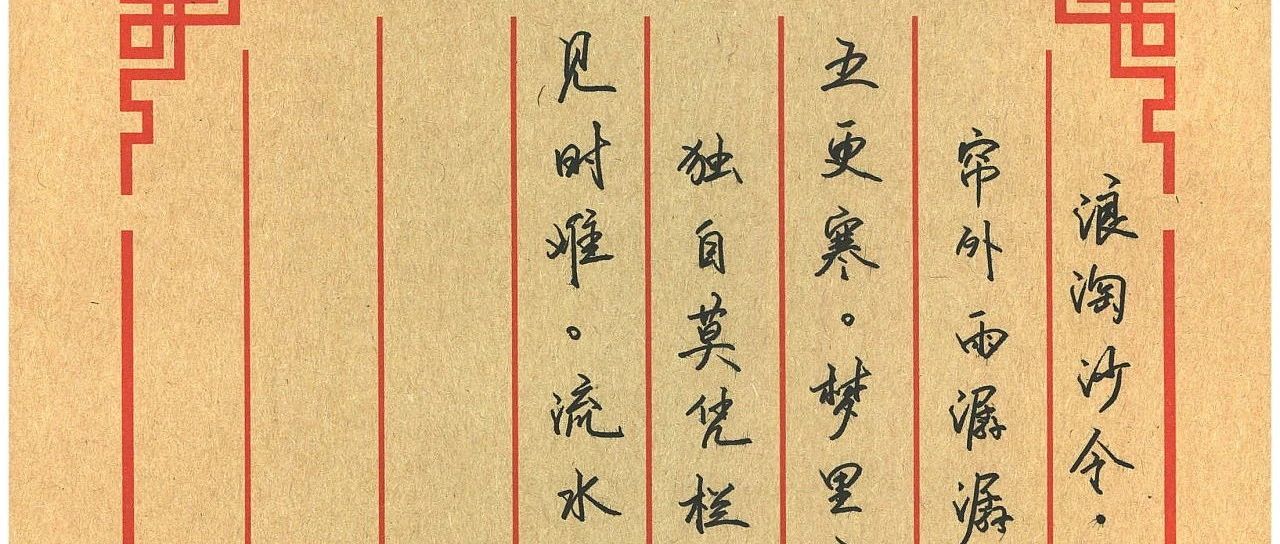 浪淘沙令·
帘外雨潺潺
五更寒。梦里
独自莫凭栏
见时难。流水